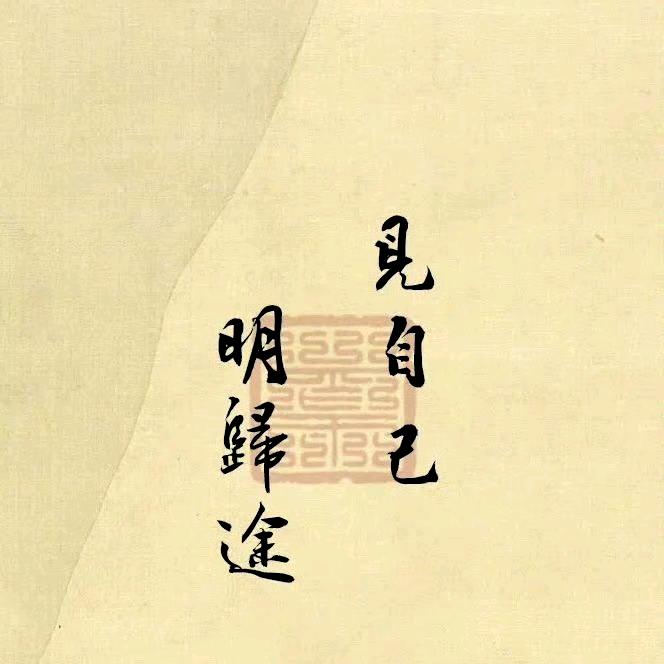 見自己
明歸途